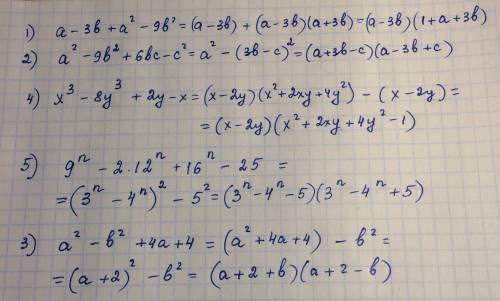 1) a - 3b + a² - 9b² = (a - 3b) + (a - 3b)(a + 3b) = (a - 3b)(1 + a + 3b)
2) a² - 9b² + 6bc - c² = a² - (3b - c)² = (a + 3b - c)(a - 3b + c)
4) x³ - 8y³ + 2y - x = (x - 2y)(x² + 2xy + 4y²) - (x - 2y) =
= (x - 2y)(x² + 2xy + 4y² - 1)
5) 9ⁿ - 2 · 12ⁿ + 16ⁿ - 25 =
= (3ⁿ - 4ⁿ)² - 5² = (3ⁿ - 4ⁿ - 5)(3ⁿ - 4ⁿ + 5)
3) a² - b² + 4a + 4 = (a² + 4a + 4) - b² =
= (a + 2)² - b² = (a + 2 + b)(a + 2 - b)